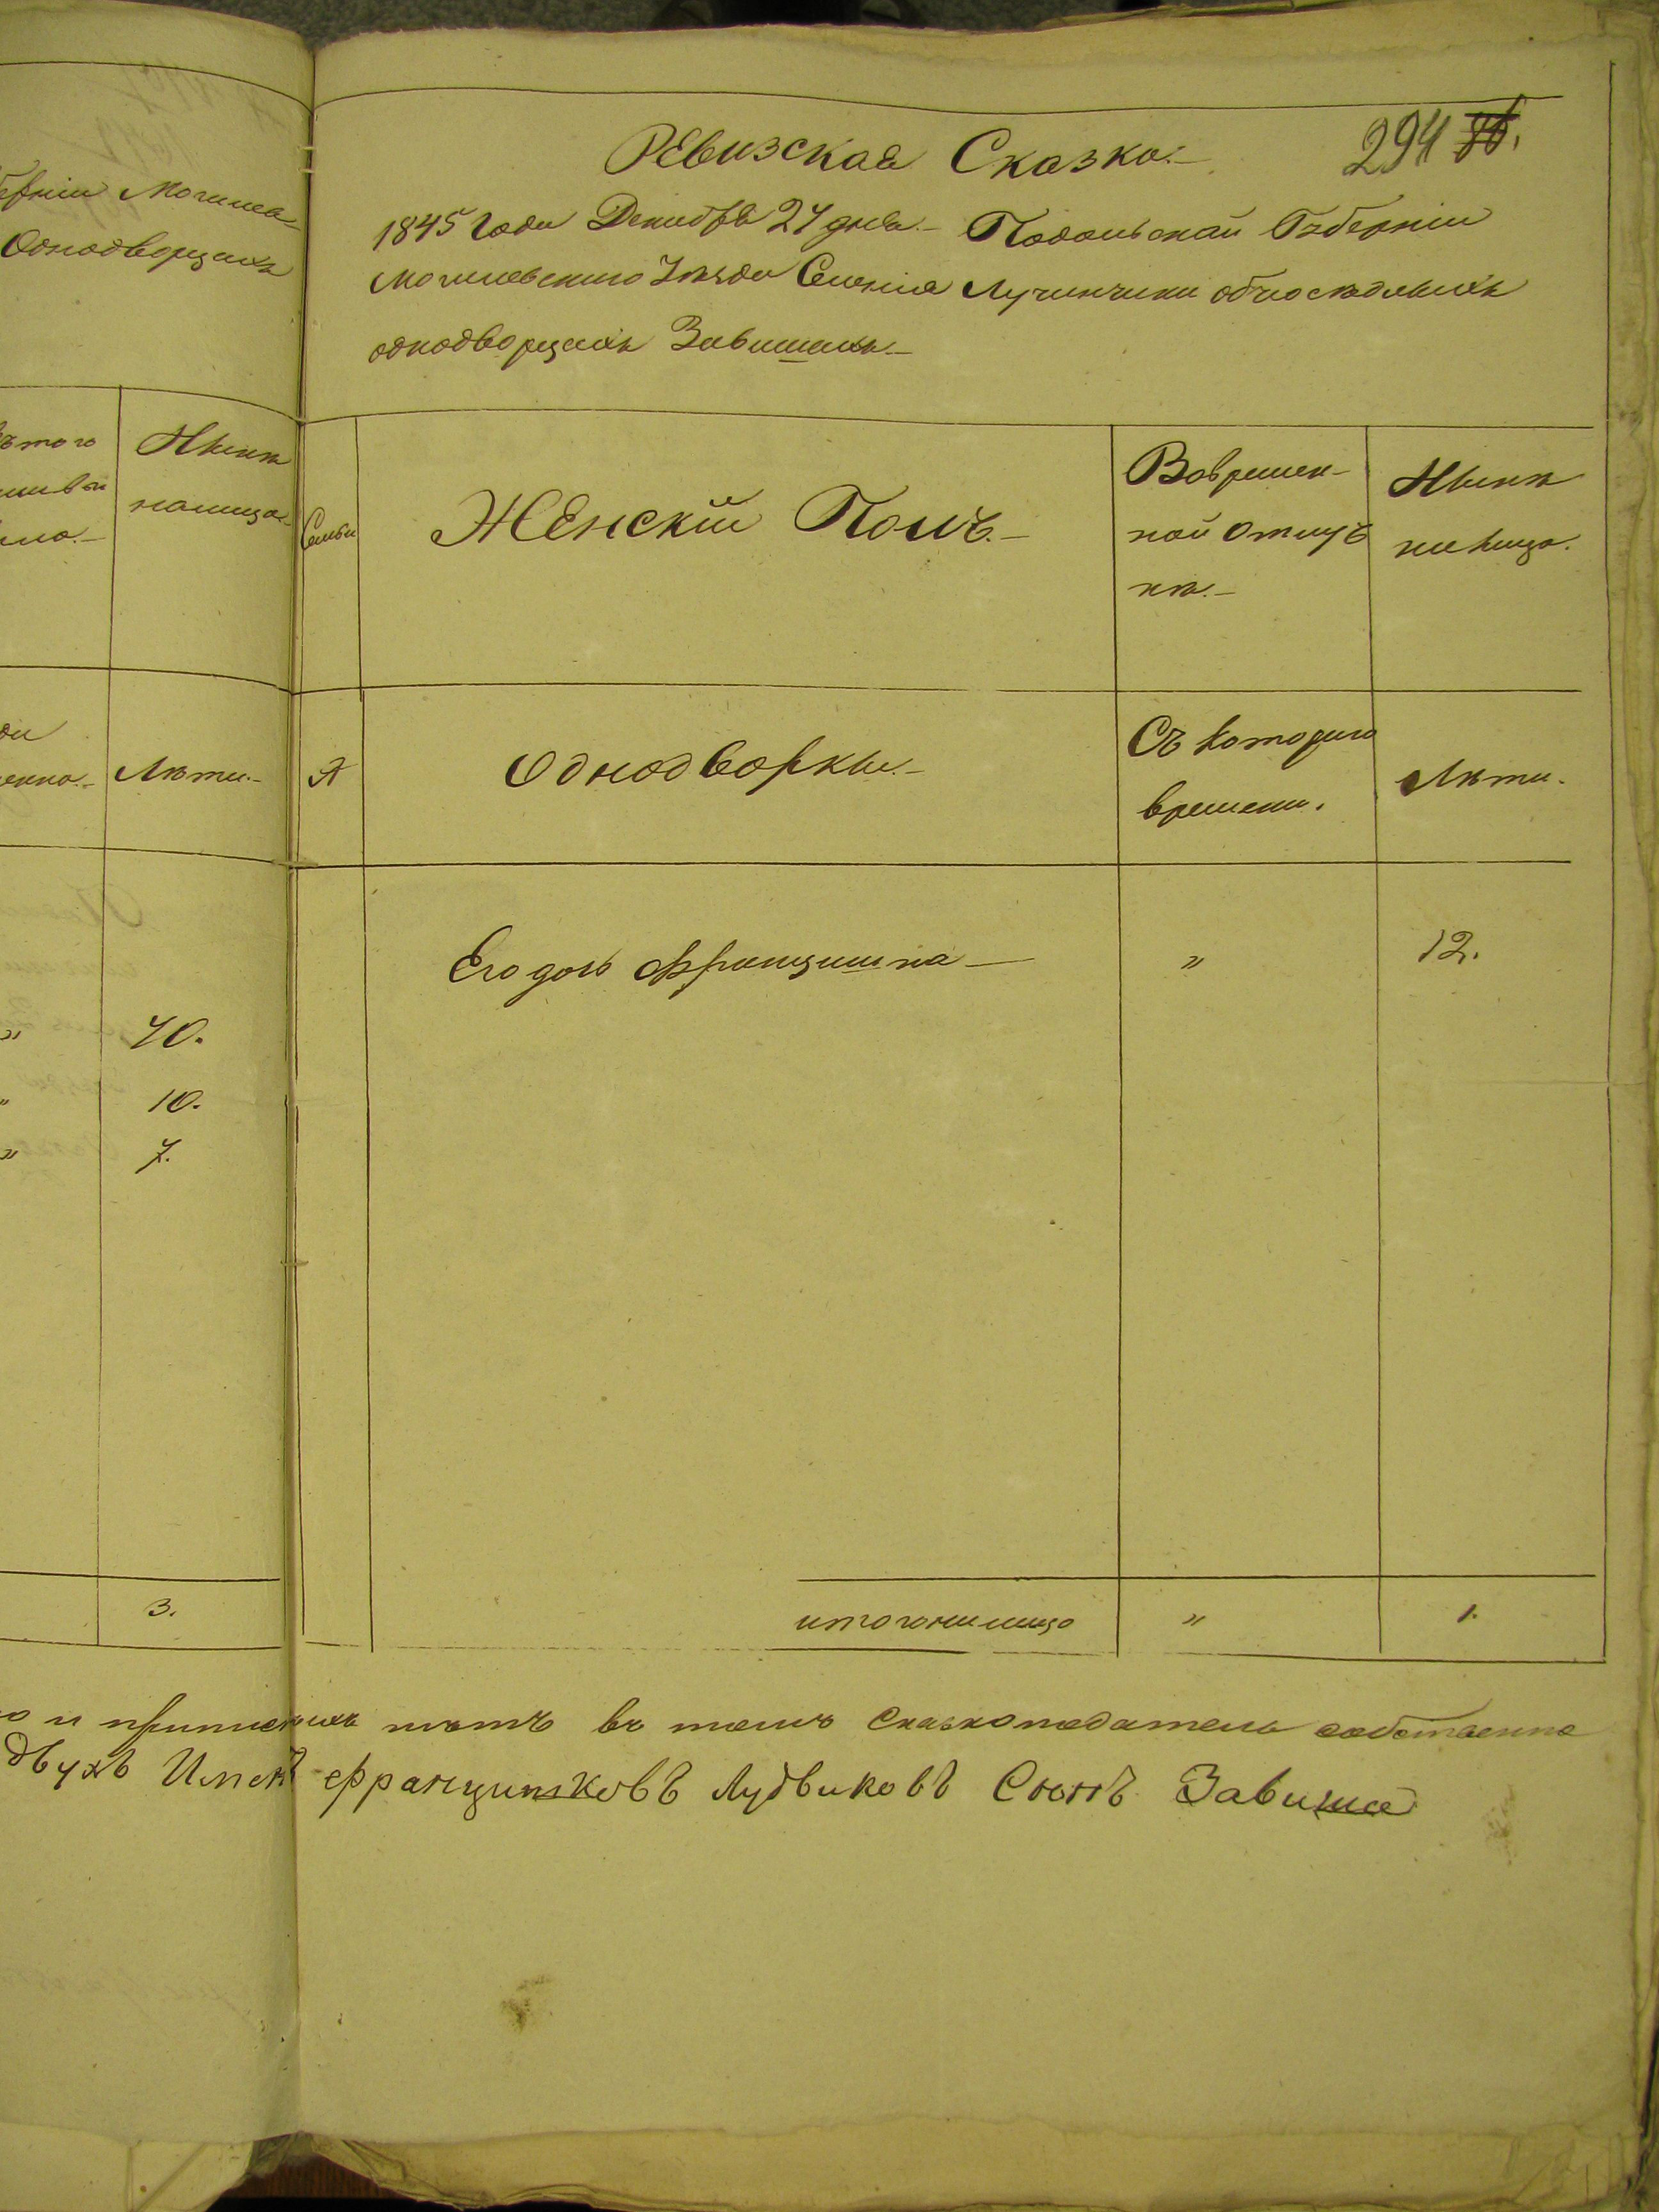 Могилев-
Однодворцахъ
Нынѣ
налицо.
Лѣта.-
40.
10.
7.
3.
294
Ревизская Сказка.-
1845 года Декабря 24 дня.- Подольской Губерніи
Могилевскаго Уѣзда Селенія Лучинчика осѣдлыхъ
однодворцахъ Завишахъ.-
Семьи
Женскій Полъ.-
Вовремен-
ной отлуч
кѣ.-
Нынѣ
налицо.
№
Однодворки.-
Съ котораго
времени.
Лѣта.
Его дочь Францишка —
"
12.
итого налицо
"
1.
и приписныхъ нѣтъ въ томъ Сказкоподатель собственно
двухъ Именъ Францишковъ Лудвиковъ Сынъ Завиша